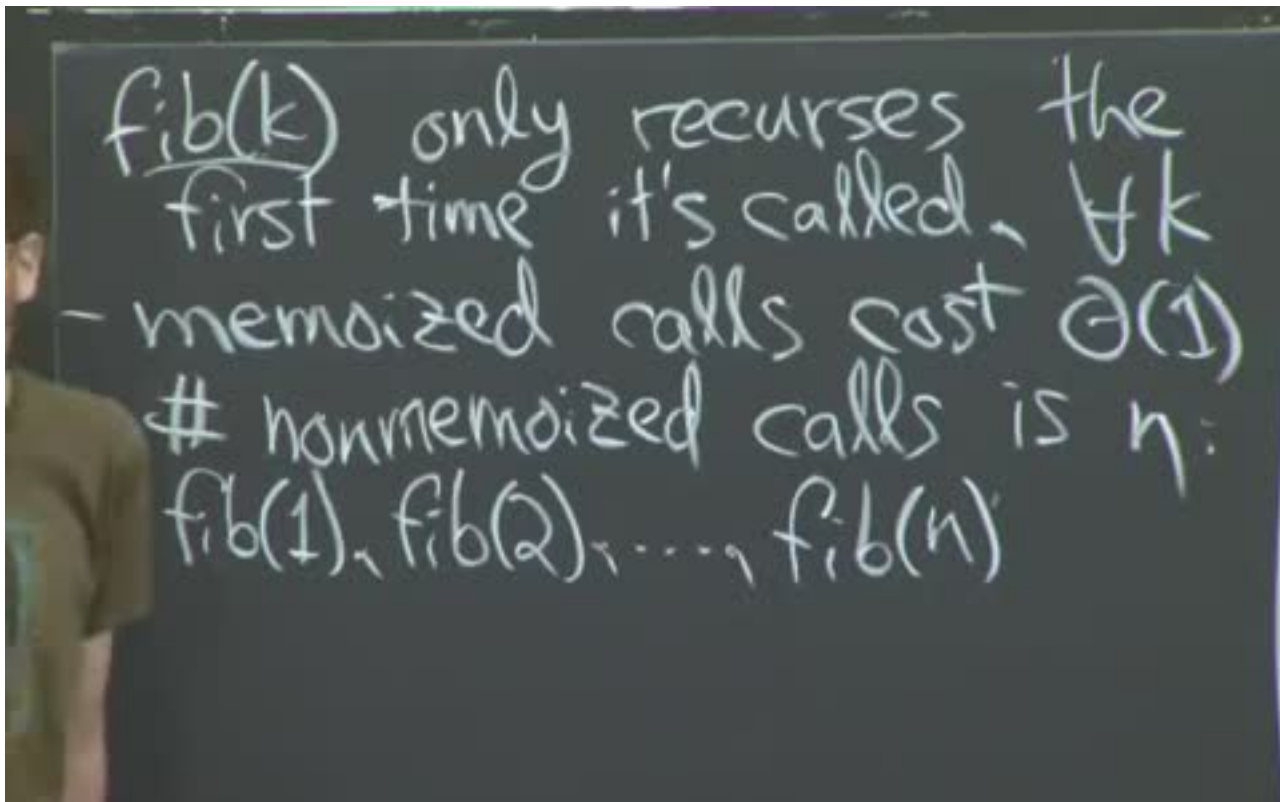 fib(k) only recurses the
first time it's called, ∀k
- memoized calls cost Θ(1)
# nonmemoized calls is n:
fib(1), fib(2), ...., fib(n)